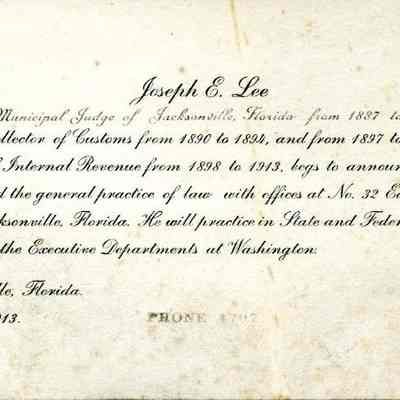 Joseph E. Lee
Municipal Judge of Jacksonville, Florida from 1887 to
llector of Customs from 1890 to 1894, and from 1897 to
Internal Revenue from 1898 to 1913, begs to announ
d the general practice of law with offices at No. 32 Ea
cksonville, Florida. He will practice in State and Feder
the Executive Departments at Washington.
lle, Florida.
913.
PHONE 4797